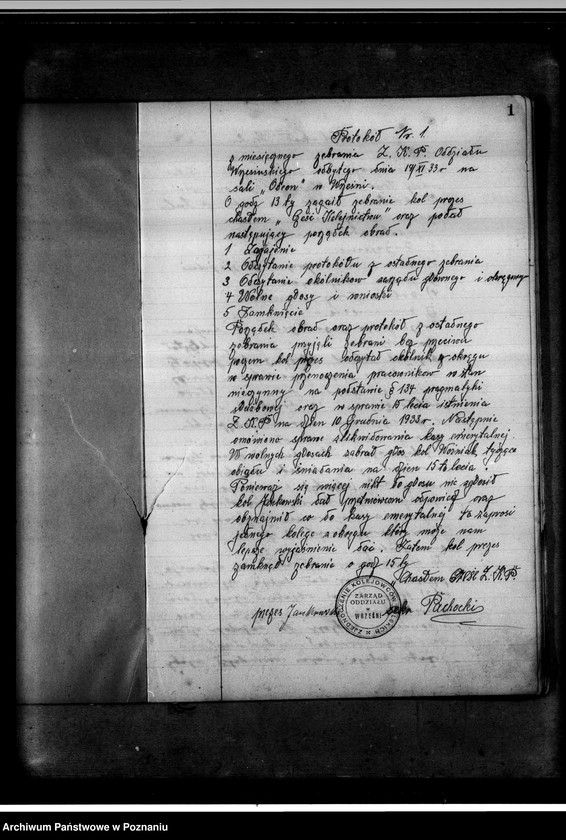 1
Protokół Nr. 1.
z miesięcznego zebrania Z. K. P. Oddziału
Wrzesińskiego odbytego dnia 19/XI 33 r na
sali „Odeon" w Wrześni.
O godz 13 tej zagaił zebranie kol prezes
hasłem „Cześć Kolejnictwu" oraz podał
następujący porządek obrad.
1 Zagajenie
2 Odczytanie protokółu z ostatnego zebrania
3 Odczytanie okólników zarządu głównego i okręgowy
4 Wolne głosy i wnioski
5 Zamknięcie
Porządek obrad oraz protokół z ostatnego
zebrania przyjęli zebrani bez przeciwu
poczem kol prezes odczytał okólnik z okręgu
w sprawie przenoszenia pracowników w stan
nieczynny na podstawie § 134 pragmatyki
służbowej oraz w sprawie 15 lecia istnienia
Z. K. P na dzien 10 Grudnia 1933 r. Następnie
omówiono sprawe zlikwidowania kasy emerytalnej
W wolnych głosach zabrał głos kol Woźniak tyczące
obiadu i śniadania na dzien 15 to lecia
Ponieważ się więcej nikt do głosu nie zgłosił
kol Jankowski dał przedmówcom odpowiedź oraz
obznajmił co do kasy emerytalnej to zaprosi
jednego kolegę z okręgu który może nam
lepsze wyjaśnienie dać. Zatem kol prezes
zamknął zebranie o godz 15 tej
Hasłem Cześć Z. K. P
prezes Jankowski sekr. Pachocki
ZJEDNOCZENIE KOLEJOWCÓW POLSKICH
ZARZĄD
ODDZIAŁU
w
WRZEŚNI
Archiwum Państwowe w Poznaniu